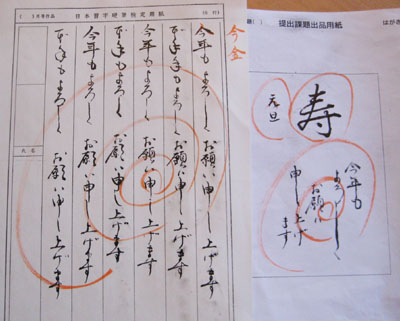 日本習字硬筆検定用紙
今年もよろしく お願い申し上げます
本年もよろしく お願い申し上げます
今年もよろしく お願い申し上げます
本年もよろしく お願い申し上げます
今年もよろしく お願い申し上げます
本年もよろしく お願い申し上げます
氏名
提出課題出品用紙
はがき
寿
元旦
今年も
よろしく
お願い
申し上げ
ます